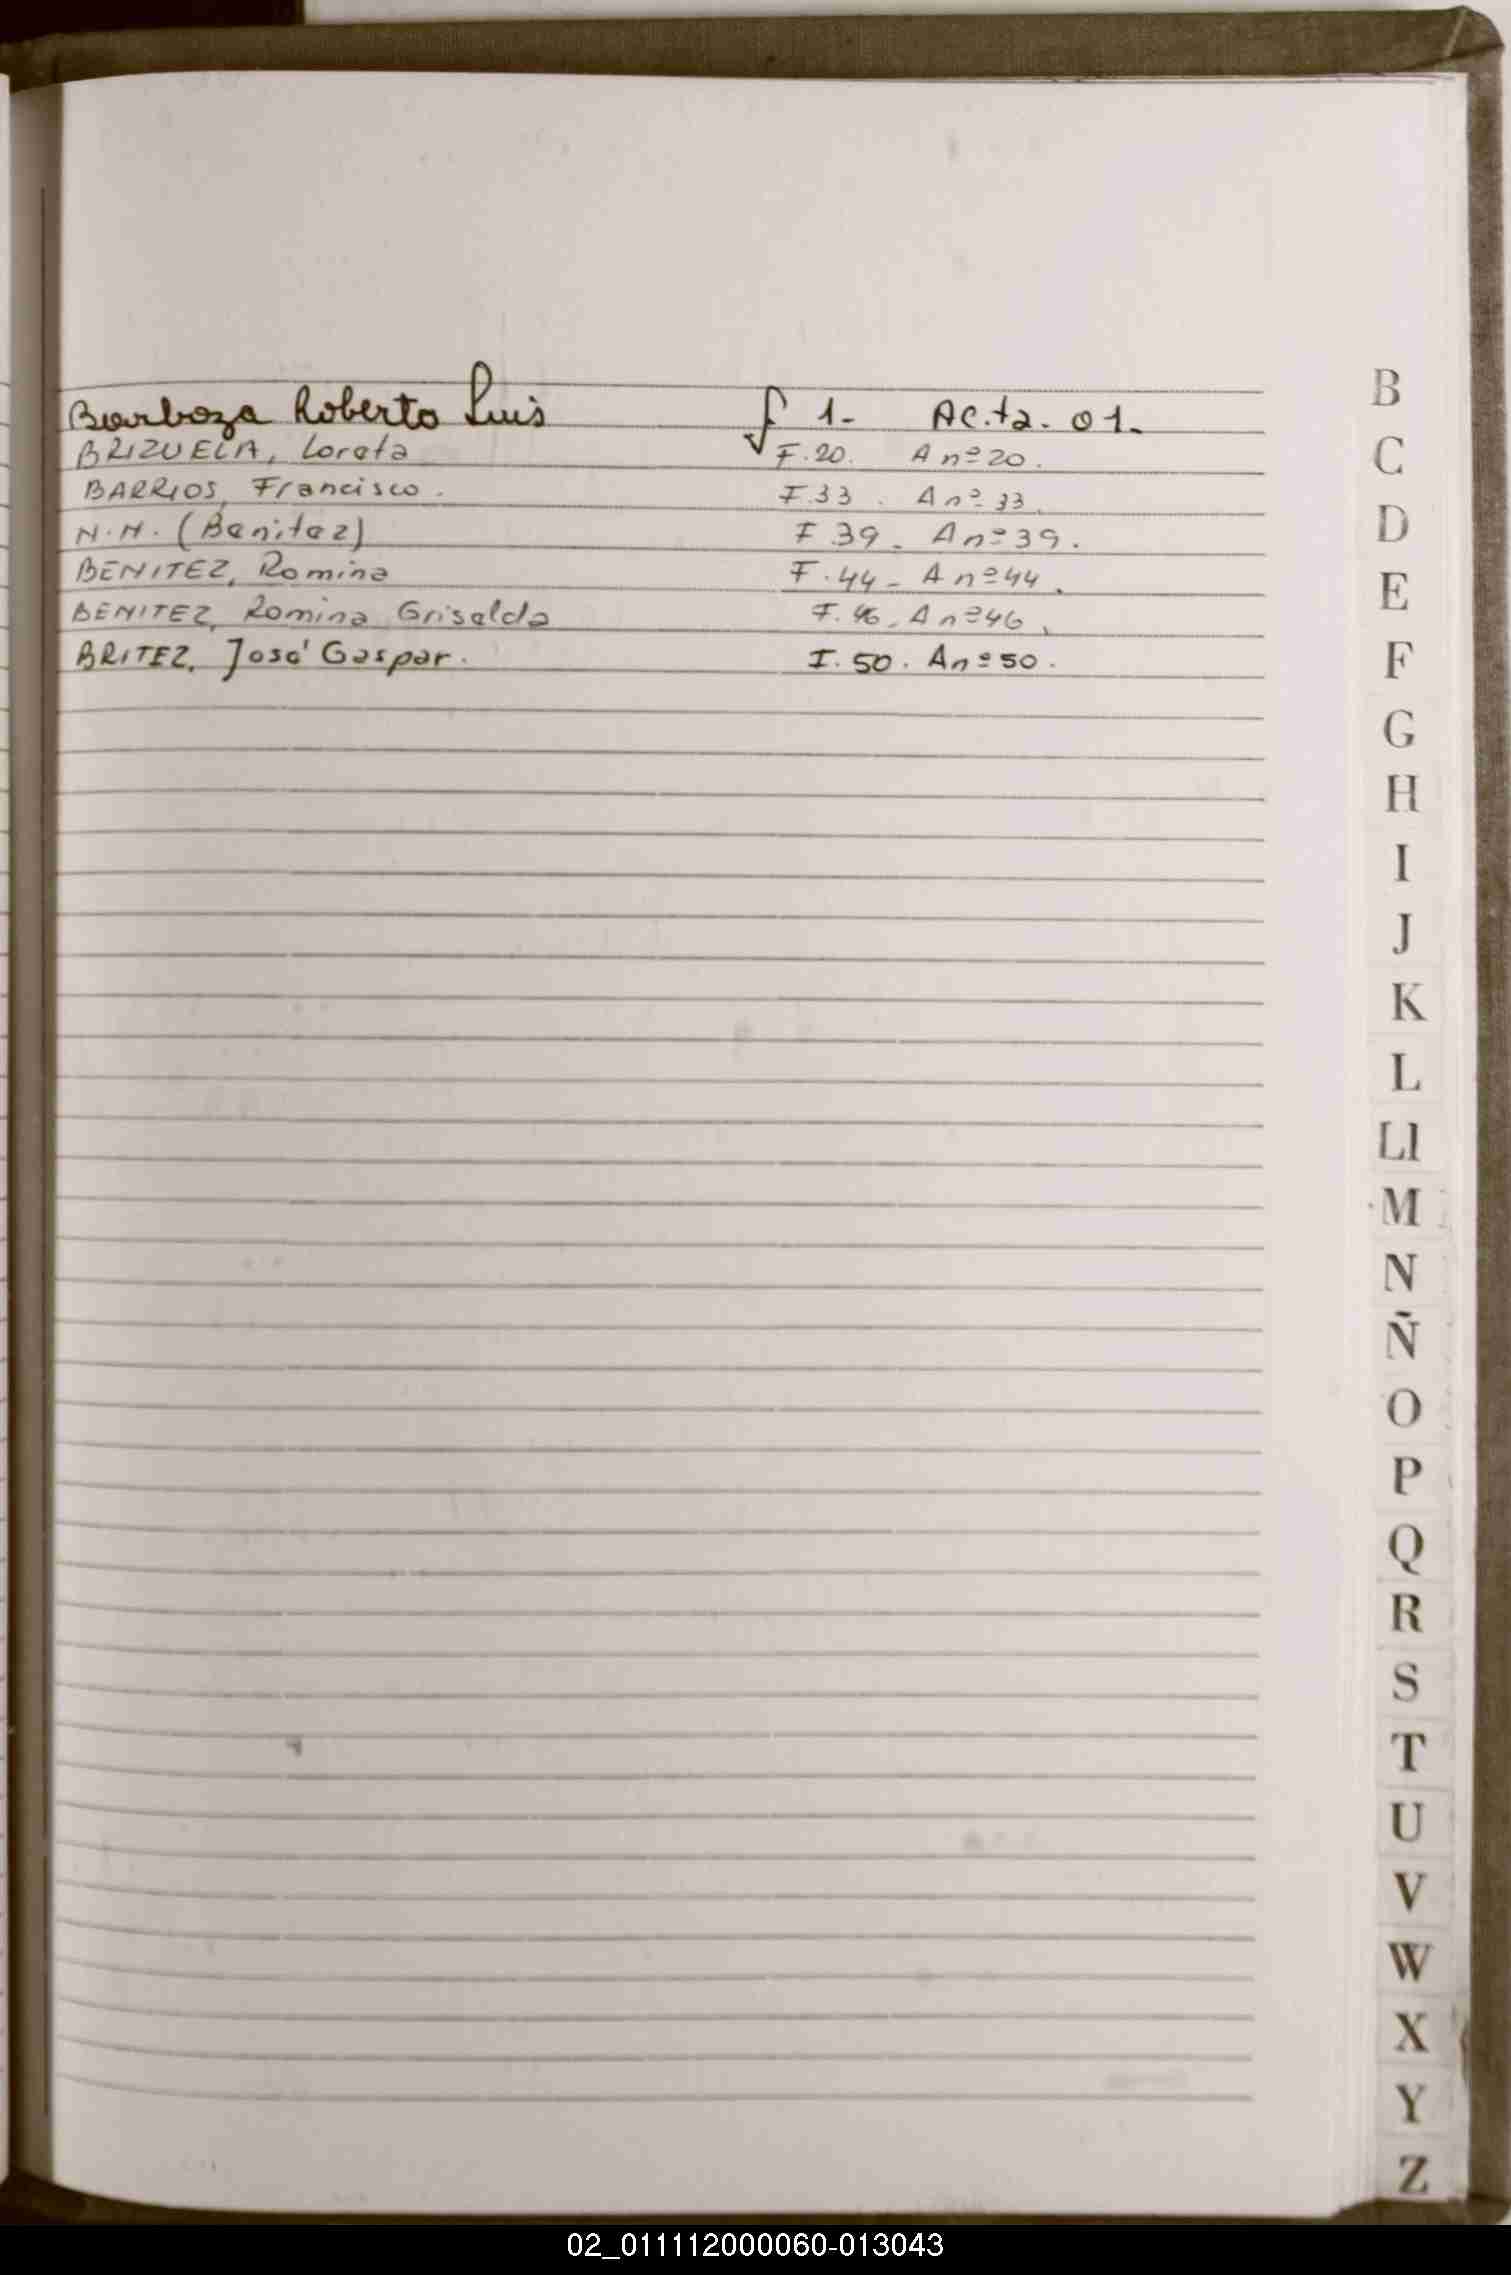 Barboza Roberto Luis f 1- Acta. 01-
BRIZUELA, Loreta F.20. A nº 20.
BARRIOS, Francisco. F.33. A nº 33.
N.N. (Benitez) F 39. A nº 39.
BENITEZ, Romina F.44- A nº 44.
BENITEZ, Romina Griselda F.46. A nº 46.
BRITEZ, José Gaspar. F.50. A nº 50.
B
C
D
E
F
G
H
I
J
K
L
Ll
M
N
Ñ
O
P
Q
R
S
T
U
V
W
X
Y
Z
02_011112000060-013043